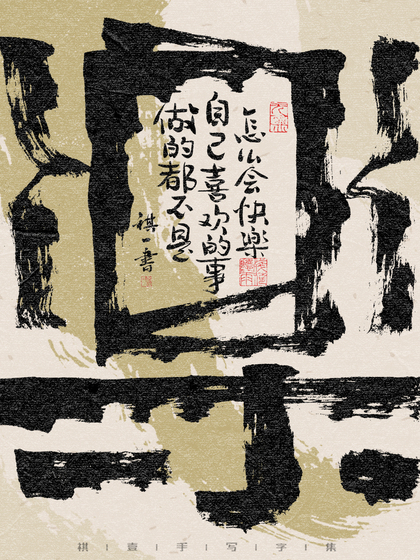 做的都不是
自己喜欢的事
怎么会快樂
祺一書
祺|壹|手|写|字|集